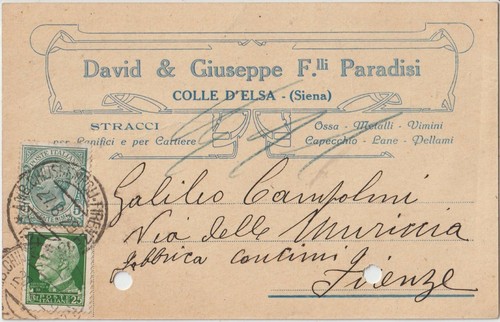 David & Giuseppe F.lli Paradisi
COLLE D'ELSA - (Siena)
STRACCI
per Lanifici e per Cartiere
Ossa - Metalli - Vimini
Capecchio - Lane - Pellami
Galileo Campolmi
Via delle Muriccia
fabbrica concimi
Firenze
POSTE ITALIANE